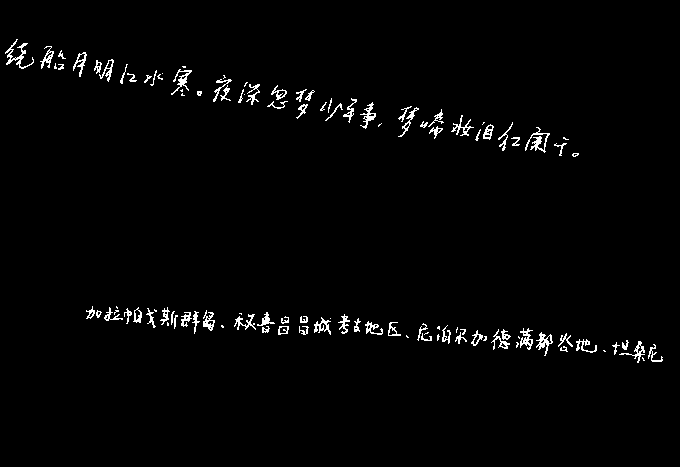 绕船月明江水寒。夜深忽梦少年事,梦啼妆泪红阑干。
加拉帕戈斯群岛、秘鲁昌昌城考古地区、尼泊尔加德满都谷地、坦桑尼